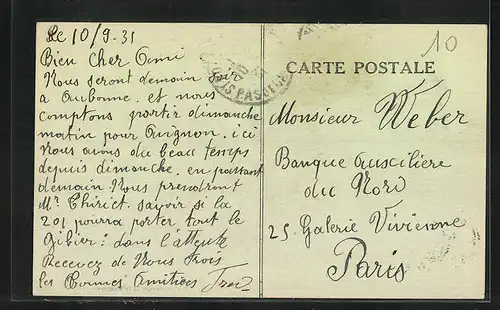 Le 10/9-31
Bien cher Ami
Nous seront demain soir
a Aubonne, et nous
comptons partir dimanche
matin pour Avignon, ici
Nous avons du beau temps
depuis dimanche, en passant
demain Nous prendront
Mr Thiriet, savoir si la
201 pourra porter tout le
Gibier: dans l'attente
Recevez de Nous trois
les Bonnes Amitiées
10
CARTE POSTALE
Monsieur Weber
Banque Ausciliere
du Nord
25. Galerie Vivienne
Paris